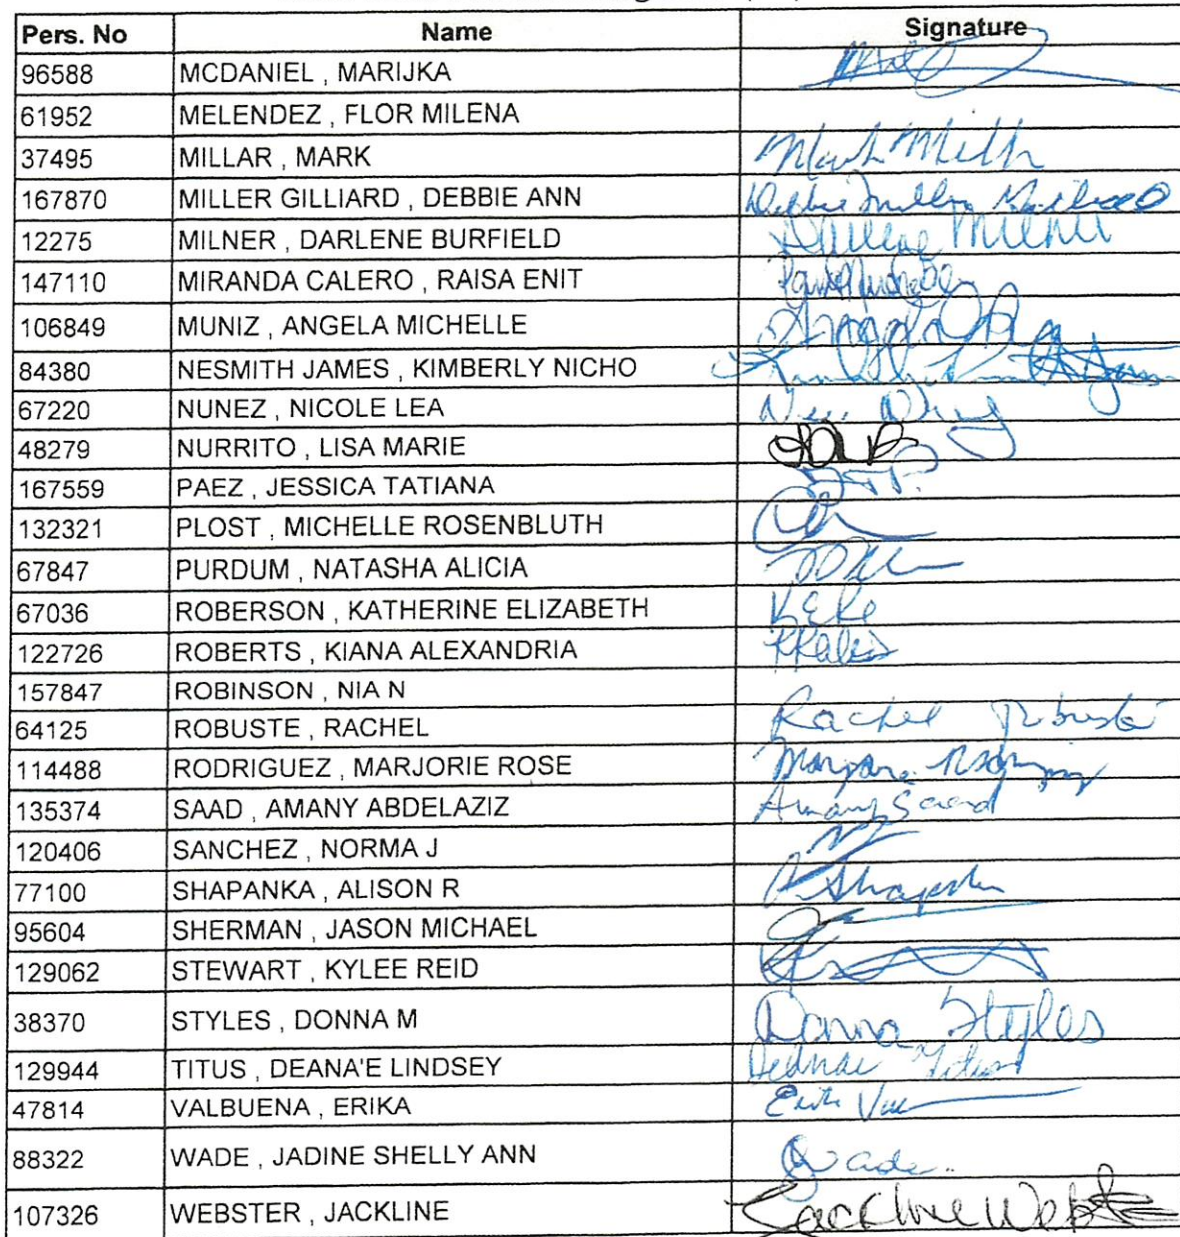 Pers. No Name Signature
96588 MCDANIEL , MARIJKA
61952 MELENDEZ , FLOR MILENA
37495 MILLAR , MARK Mark
167870 MILLER GILLIARD , DEBBIE ANN Debbie Miller
12275 MILNER , DARLENE BURFIELD Darlene Milner
147110 MIRANDA CALERO , RAISA ENIT
106849 MUNIZ , ANGELA MICHELLE Angela
84380 NESMITH JAMES , KIMBERLY NICHO
67220 NUNEZ , NICOLE LEA
48279 NURRITO , LISA MARIE
167559 PAEZ , JESSICA TATIANA
132321 PLOST , MICHELLE ROSENBLUTH
67847 PURDUM , NATASHA ALICIA
67036 ROBERSON , KATHERINE ELIZABETH
122726 ROBERTS , KIANA ALEXANDRIA
157847 ROBINSON , NIA N
64125 ROBUSTE , RACHEL Rachel Robuste
114488 RODRIGUEZ , MARJORIE ROSE
135374 SAAD , AMANY ABDELAZIZ Amany Saad
120406 SANCHEZ , NORMA J
77100 SHAPANKA , ALISON R
95604 SHERMAN , JASON MICHAEL
129062 STEWART , KYLEE REID
38370 STYLES , DONNA M Donna Styles
129944 TITUS , DEANA'E LINDSEY Deanae Titus
47814 VALBUENA , ERIKA
88322 WADE , JADINE SHELLY ANN JWade
107326 WEBSTER , JACKLINE Jackline Webster